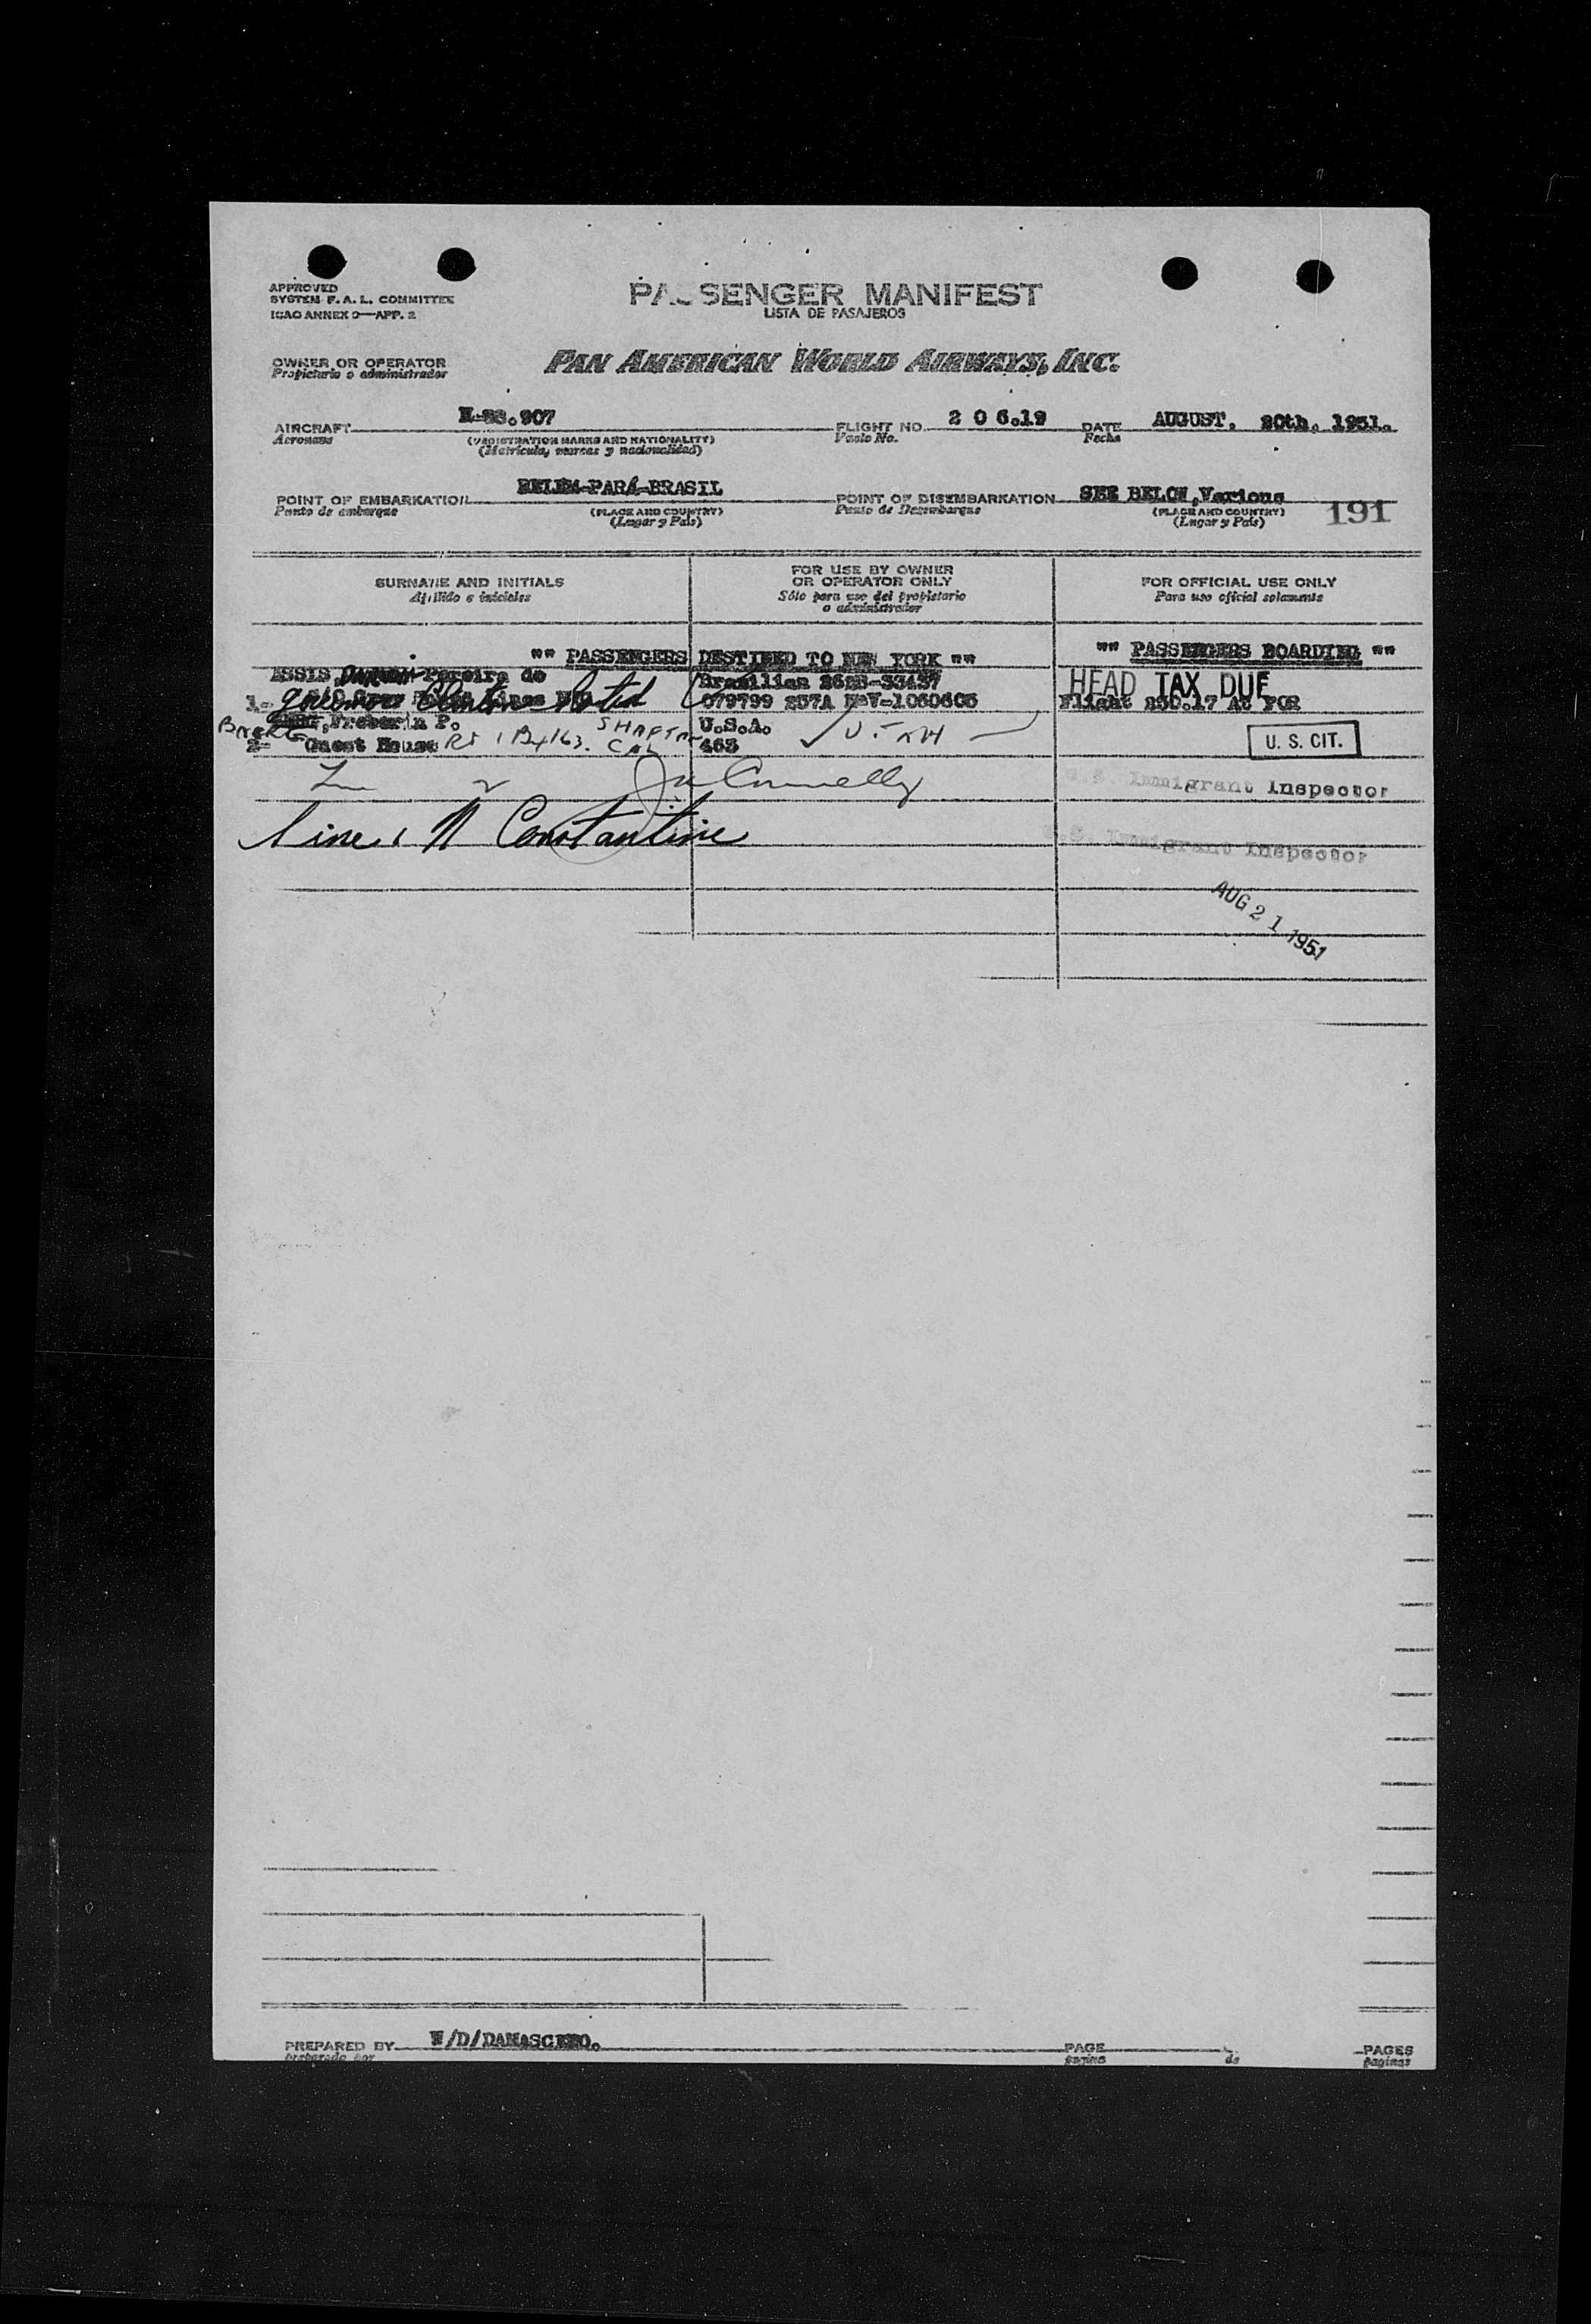 APPROVED
SYSTEM F. A. L. COMMITTEE
ICAO ANNEX 9—APP. 2
PASSENGER MANIFEST
LISTA DE PASAJEROS
OWNER OR OPERATOR
Propietario o administrador
PAN AMERICAN WORLD AIRWAYS, INC.
AIRCRAFT N-88.907 FLIGHT NO. 2 0 6.19 DATE AUGUST. 20th, 1951.
Aeronave (REGISTRATION MARKS AND NATIONALITY) Vuelo No. Fecha
(Matricula, marcas y nacionalidad)
POINT OF EMBARKATION BELEM-PARÁ-BRASIL POINT OF DISEMBARKATION SEE BELOW, Various
Punto de embarque (PLACE AND COUNTRY) Punto de Desembarque (PLACE AND COUNTRY)
(Lugar y País) (Lugar y País) 191
SURNAME AND INITIALS
Apellido e iniciales
FOR USE BY OWNER
OR OPERATOR ONLY
Sólo para uso del propietario
o administrador
FOR OFFICIAL USE ONLY
Para uso oficial solamente
"" PASSENGERS DESTINED TO NEW YORK "" "" PASSENGERS BOARDING ""
ASSIS, Pereira de Brazilian HEAD TAX DUE
1- Governor Clinton Hotel 079799 257A Flight 250.17 At POR
P. U.S.A.
2- Guest House Rt 1 Bx 163. SHAFTER CAL 463 U. S. CIT.
Connelly U.S. Immigrant Inspector
Constantine U.S. Immigrant Inspector
AUG 21 1951
PREPARED BY /D/DAMASCENO. PAGE PAGES
preparado por pagina de paginas